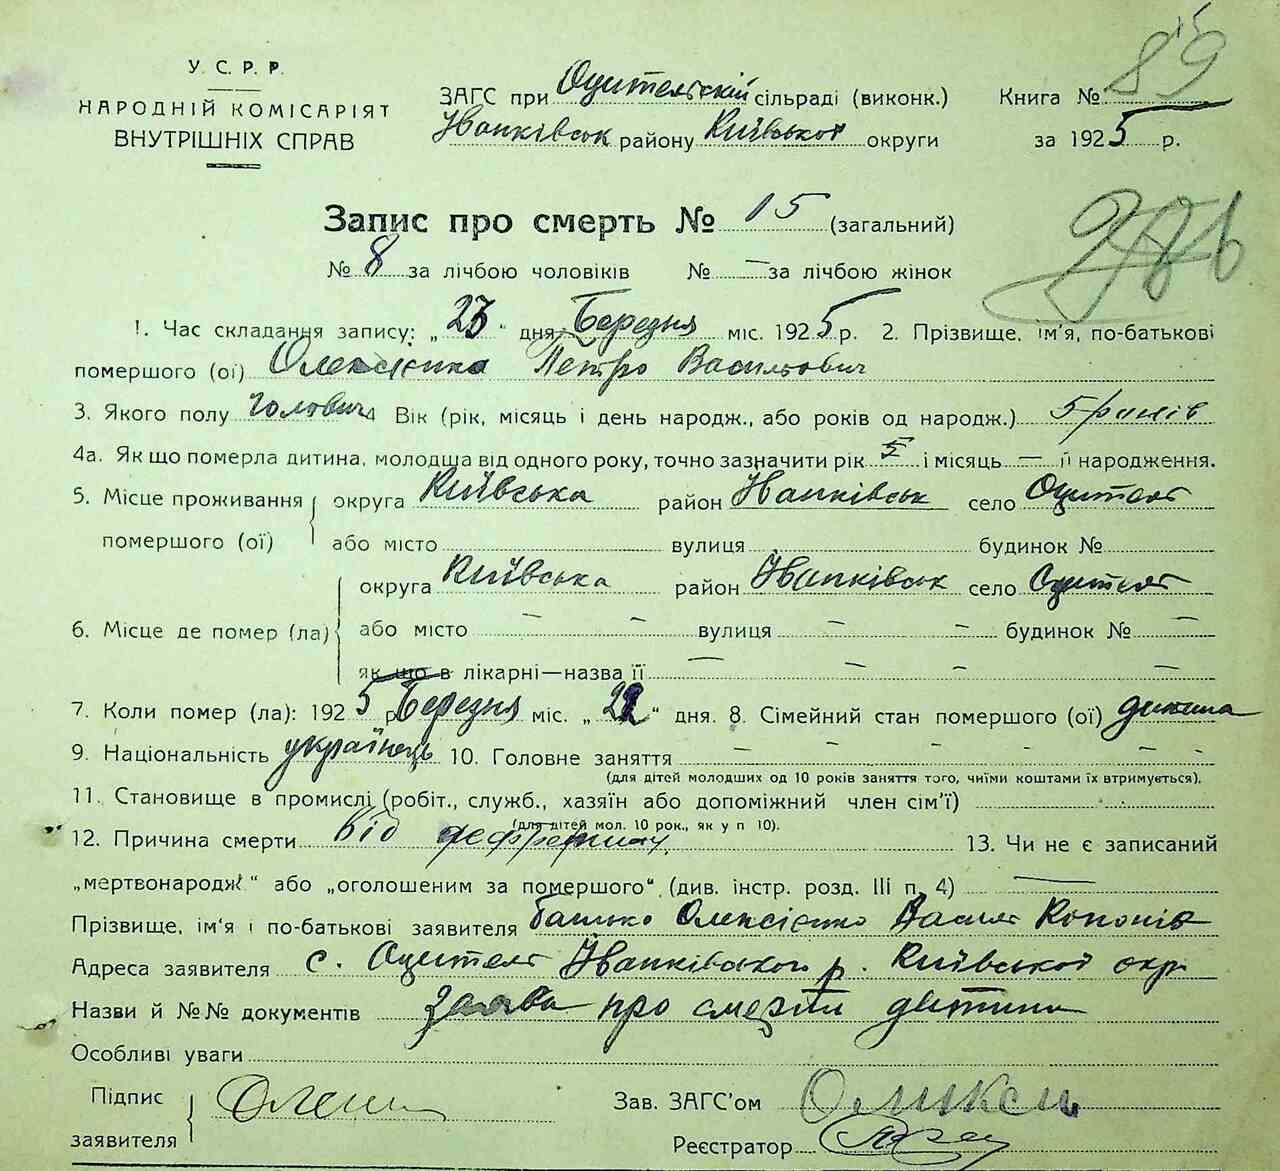 У. С. Р. Р.
НАРОДНІЙ КОМІСАРІЯТ
ВНУТРІШНІХ СПРАВ
ЗАГС при Оцительскій сільраді (виконк.) Книга № 89
Іванківськ району Київської округи за 1925 р.
Запис про смерть № 15 (загальний)
№ 8 за лічбою чоловіків № — за лічбою жінок
1. Час складання запису: „23" дня Березня міс. 1925 р. 2. Прізвище, ім'я, по-батькові
помершого (ої) Олексієнка Петро Васильович
3. Якого полу Чоловіч 4 Вік (рік, місяць і день народж., або років од народж.) 5 років
4а. Як що померла дитина, молодша від одного року, точно зазначити рік 5 і місяць — її народження.
5. Місце проживання округа Київська район Іванківськ село Оцитель
помершого (ої) або місто вулиця будинок №
округа Київська район Іванківськ село Оцитель
6. Місце де помер (ла) або місто — — вулиця — — будинок № —
як що в лікарні—назва її — — — —
7. Коли помер (ла): 1925 р. Березня міс. „22" дня. 8. Сімейний стан помершого (ої) дитина
9. Національність українець 10. Головне заняття — — — — — —
(для дітей молодших од 10 років заняття того, чиїми коштами їх втримується).
11. Становище в промислі (робіт., служб., хазяїн або допоміжний член сім'ї)
(для дітей мол. 10 рок., як у п 10).
12. Причина смерти від 13. Чи не є записаний
„мертвонародж." або „оголошеним за помершого" (див. інстр. розд. III п. 4) —
Прізвище, ім'я і по-батькові заявителя батько Олексієнко Василь Кононів
Адреса заявителя с. Оцитель Іванківської р. Київської окр.
Назви й №№ документів Заява про смерть дитини
Особливі уваги
Підпис
заявителя
Зав. ЗАГС'ом
Реєстратор